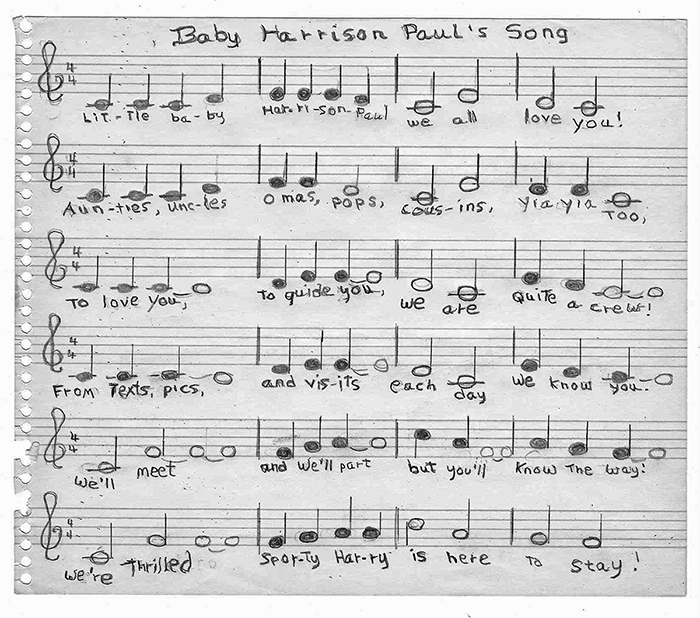 Baby Harrison Paul's Song
4/4
Lit-tle ba-by Har-ri-son-Paul we all love you!
4/4
Aun-ties, unc-les omas, pops, cous-ins, yia yia too,
4/4
To love you, To guide you, we are quite a crew!
4/4
From Texts, pics, and vis-its each day we know you.
4/4
we'll meet and we'll part but you'll know the way!
4/4
we're thrilled Spor-ty Har-ry is here to stay!